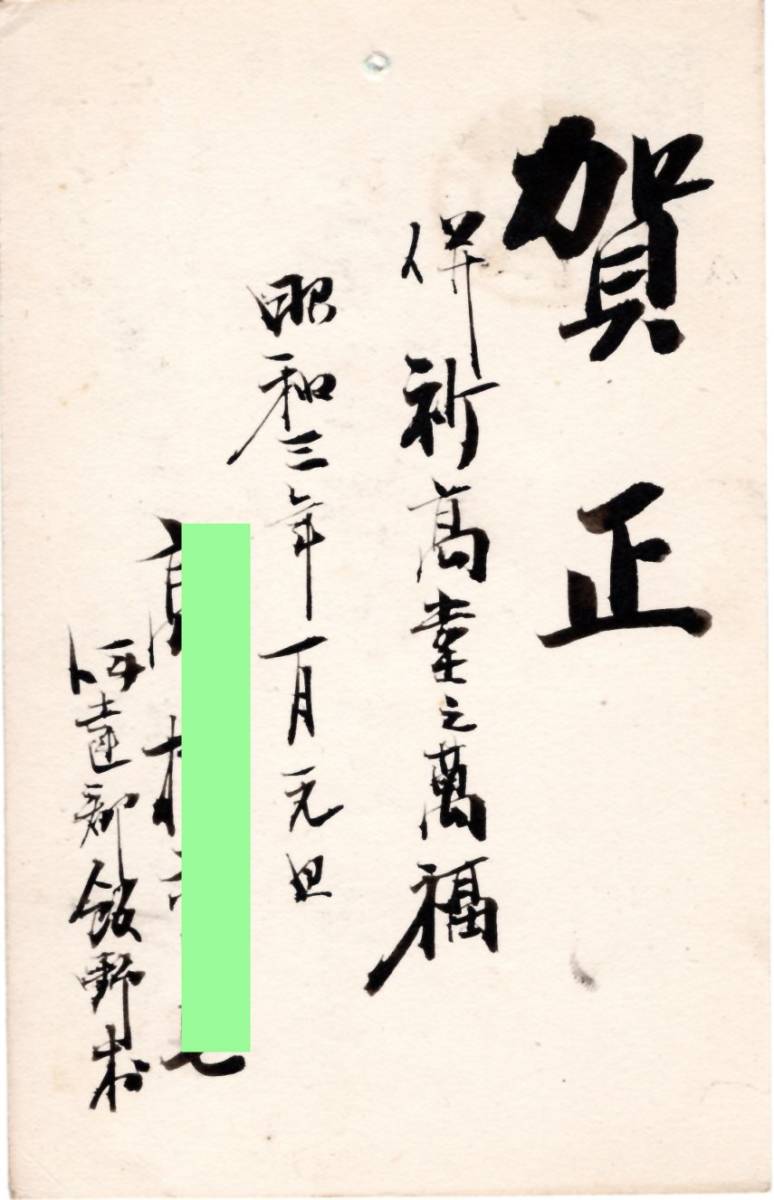 賀正
併祈高堂之萬福
昭和三年一月元旦
伊達郡飯野村